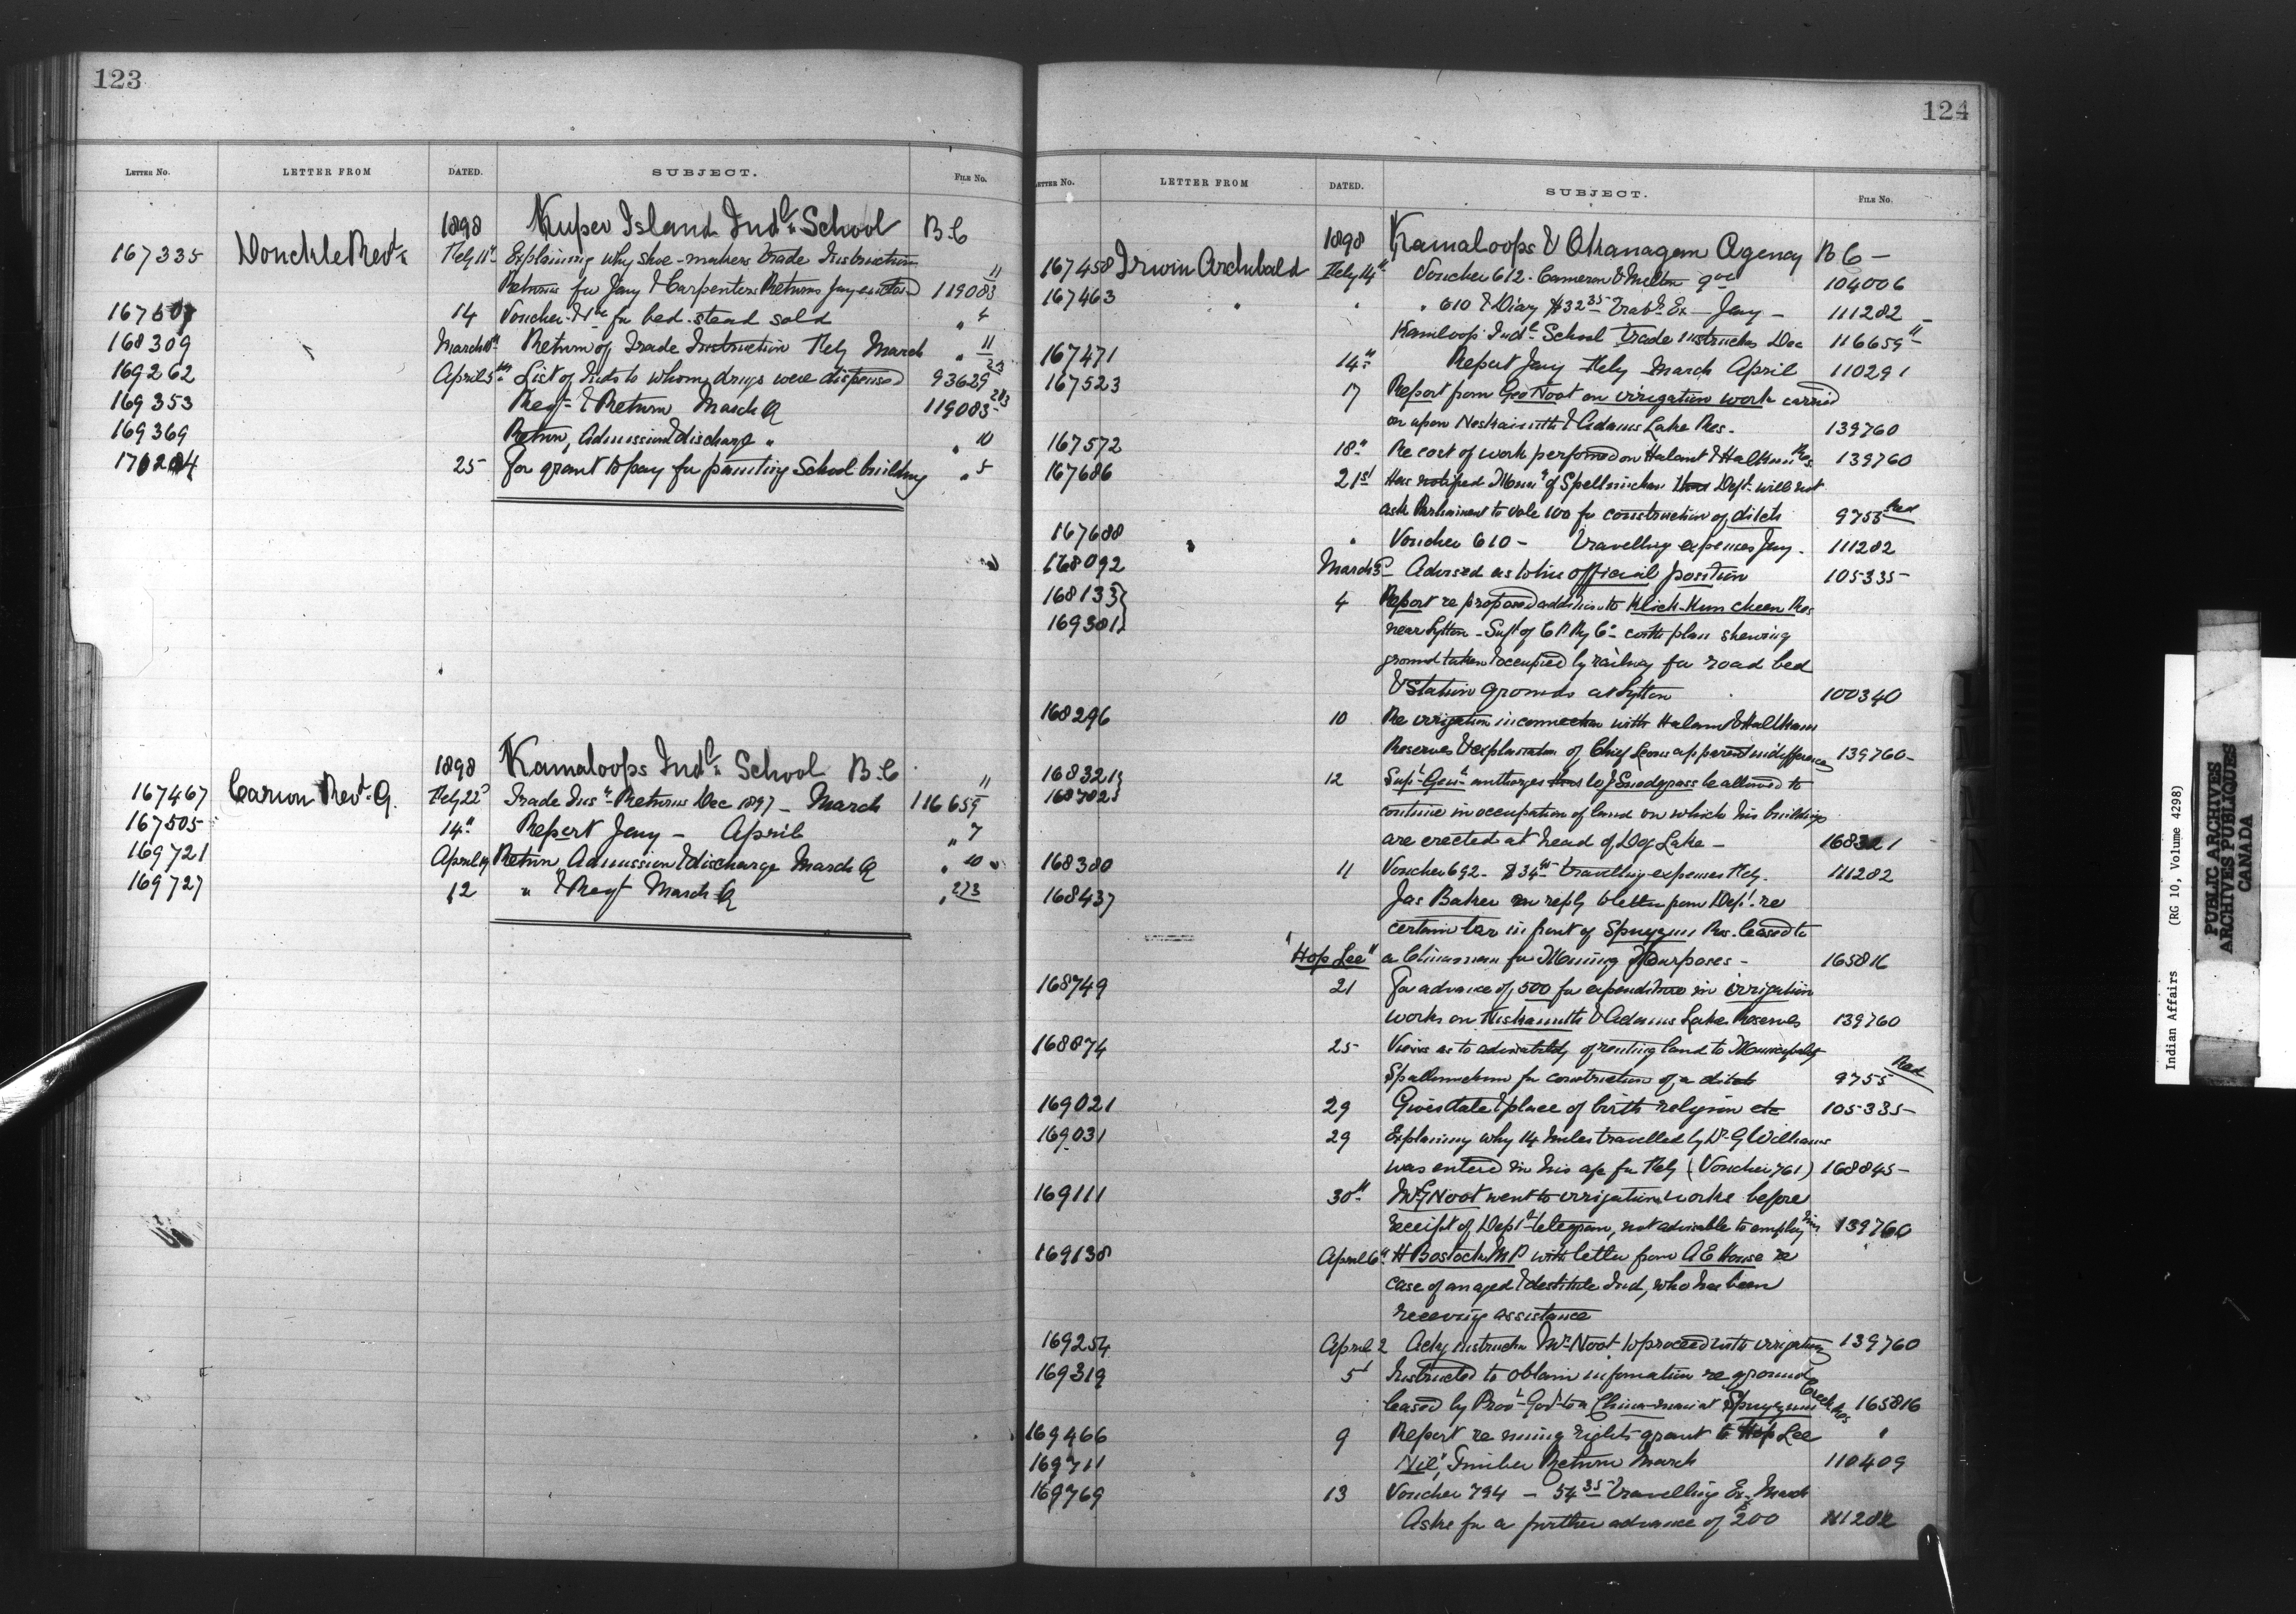 123
LETTER NO. LETTER FROM DATED. SUBJECT. FILE NO.
1898 Kuper Island Indl School B.C
167335 Donckle Revd Feby 11th Explaining why shoe-makers Trade Instruction
Returns for Jany & Carpenters Returns Jany 119083 11
14 Voucher for bed-stead sold " 4
168309 March Return of Trade Instruction Feby March " 11
169262 April 5th List of Inds to whom drugs were dispensed 93629 23
169353 Regt & Return March Q 119083 2&3
169369 Return, Admission & discharge " " 10
25 For grant to pay for painting School building " 5
1898 Kamaloops Indl School B.C
167467 Carion Revd. G. Feby 22d Trade Insn Returns Dec 1897 - March 116659 11
167505 14th Report Jany - April " 7
169721 April 19 Return Admission & discharge March Q " 10
169727 12 " & Regt March Q " 2&3
124
LETTER NO. LETTER FROM DATED. SUBJECT. FILE NO.
1898 Kamaloops & Okanagan Agency B C -
167458 Irwin Archibald Feby 14th Voucher 612. Cameron & Milton 104006
167463 " " " 610 & Diary $32 35 Travg Ex - Jany - 111282
Kamloops Indl School Trade instruction Dec 116659 11
167471 14th Report Jany Feby March April 110291
167523 17 Report from Geo Noot on irrigation work carried
on upon Neskainith & Adams Lake Res. 139760
167572 18th Re cost of work performed on Halaut & Halkam Res. 139760
167686 21st Has notified Muny of Spellmichen that Dept will not
ask Parliament to vote 100 for construction of ditch 9755 Red
167688 " Voucher 610 - Travelling expenses Jany. 111282
168092 March 3d Advised as to his official position 105335
168133} 4 Report re proposed addition to Klick-Kum cheen Res
169301} near Lytton - Supt of C P Ry Co with plan shewing
ground taken & occupied by railway for road bed
& Station grounds at Lytton 100340
168296 10 Re irrigation in connection with Halaut & Halkham
Reserves & explanation of Chief Leons apparent indifference 139760
168321} 12 Supt Genl authorizes that J Snodgrass be allowed to
168702} continue in occupation of land on which his buildings
are erected at head of Dog Lake - 168321
168380 11 Voucher 692 - $34 travelling expenses Feby. 111282
168437 Jas Baker in reply to letter from Dept. re
certain bar in front of Spuzzum Res. leased to
"Hop Lee" a Chinaman for Mining Purposes - 165816
168749 21 For advance of 500 for expenditure in irrigation
works on Neskainith & Adams Lake Reserves 139760
168874 25 Views as to advisability of renting land to Municipality
Spallumcheen for construction of a ditch 9755 Red
169021 29 Gives date & place of birth religion etc 105335
169031 29 Explaining why 14 miles travelled by Dr. G Williams
was entered in his a/c for Feby (Voucher 761) 168845
169111 30th Mr G Noot went to irrigation works before
receipt of Dept telegram, not advisable to employ him 139760
169138 April 6th H Bostock M P with letter from A E Howse re
case of an aged & destitute Ind, who has been
receiving assistance
169254 April 2 Ackg instruction Mr Noot to proceed with irrigation 139760
169319 5th Instructed to obtain information re ground
leased by Prov Govt to a Chinaman at Spuzzum Creek Res 165816
169466 9 Report re mining rights grant to Hop Lee "
169711 "Nil", Timber Return March 110409
169769 13 Voucher 794 - 54 35 Travelling Ex March
Asks for a further advance of 200 111282
Indian Affairs (RG 10, Volume 4298)
PUBLIC ARCHIVES
ARCHIVES PUBLIQUES
CANADA